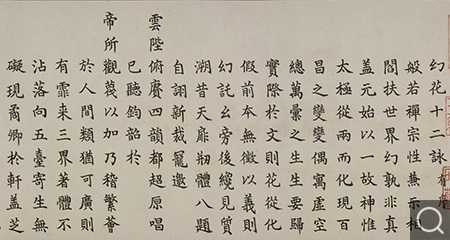 幻花十二詠有序
般若禪宗性兼示相
閻扶世界幻孰非真
蓋元始以一故神惟
太極從兩而化現百
昌之變變偶寓虛空
總萬彙之生生要歸
實際於文則花從化
假前本無徵以義則
幻託幺旁後纔見質
溯昔天扉初體八題
自詡新裁寵邀
雲陛俯賡四韻都超原唱
已聽鈞韶於
帝所觀蓺以加乃稽繁薈
於人間類猶可廣則
有霏來三界著體不
沾落向五臺寄生無
礙現矞卿於軒蓋芝